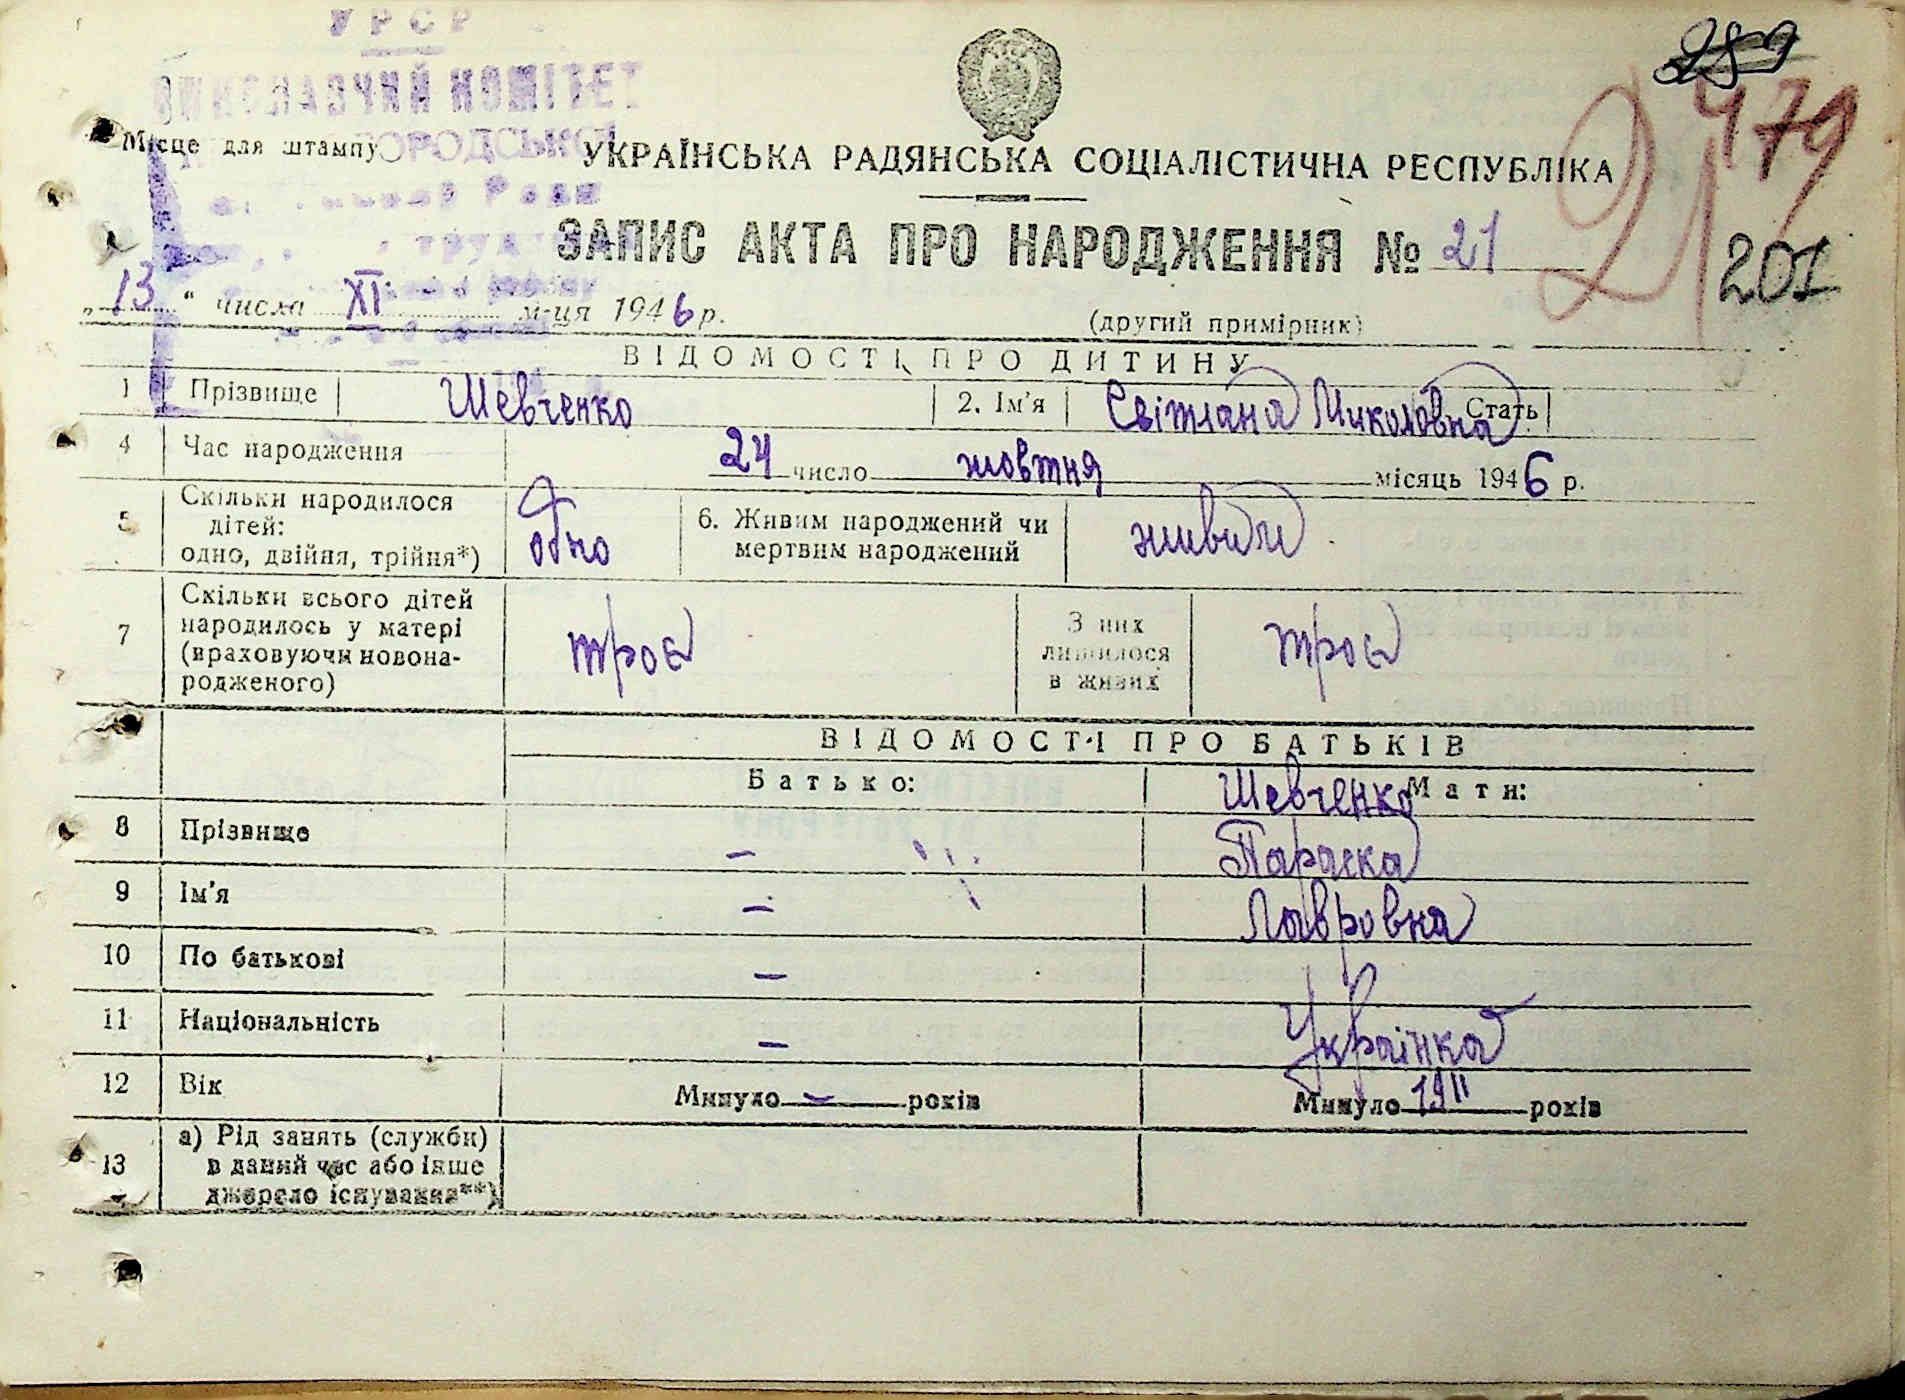 УРСР
ВИКОНАВЧИЙ КОМІТЕТ
Місце для штампу
УКРАЇНСЬКА РАДЯНСЬКА СОЦІАЛІСТИЧНА РЕСПУБЛІКА
479
21
201
ЗАПИС АКТА ПРО НАРОДЖЕННЯ № 21
„13“ числа XI м-ця 1946 р.
(другий примірник)
ВІДОМОСТІ ПРО ДИТИНУ
1 Прізвище Шевченко 2. Ім'я Світлана Миколовна Стать
4 Час народження 24 число жовтня місяць 1946 р.
5 Скільки народилося дітей: одно, двійня, трійня*) одно 6. Живим народжений чи мертвим народжений живим
7 Скільки всього дітей народилось у матері (враховуючи новонародженого) троє З них лишилося в живих троє
ВІДОМОСТІ ПРО БАТЬКІВ
Батько: Мати:
8 Прізвище — Шевченко
9 Ім'я — Параска
10 По батькові — Лавровна
11 Національність — Українка
12 Вік Минуло — років Минуло 1911 років
13 а) Рід занять (служби) в даний час або інше джерело існування**)